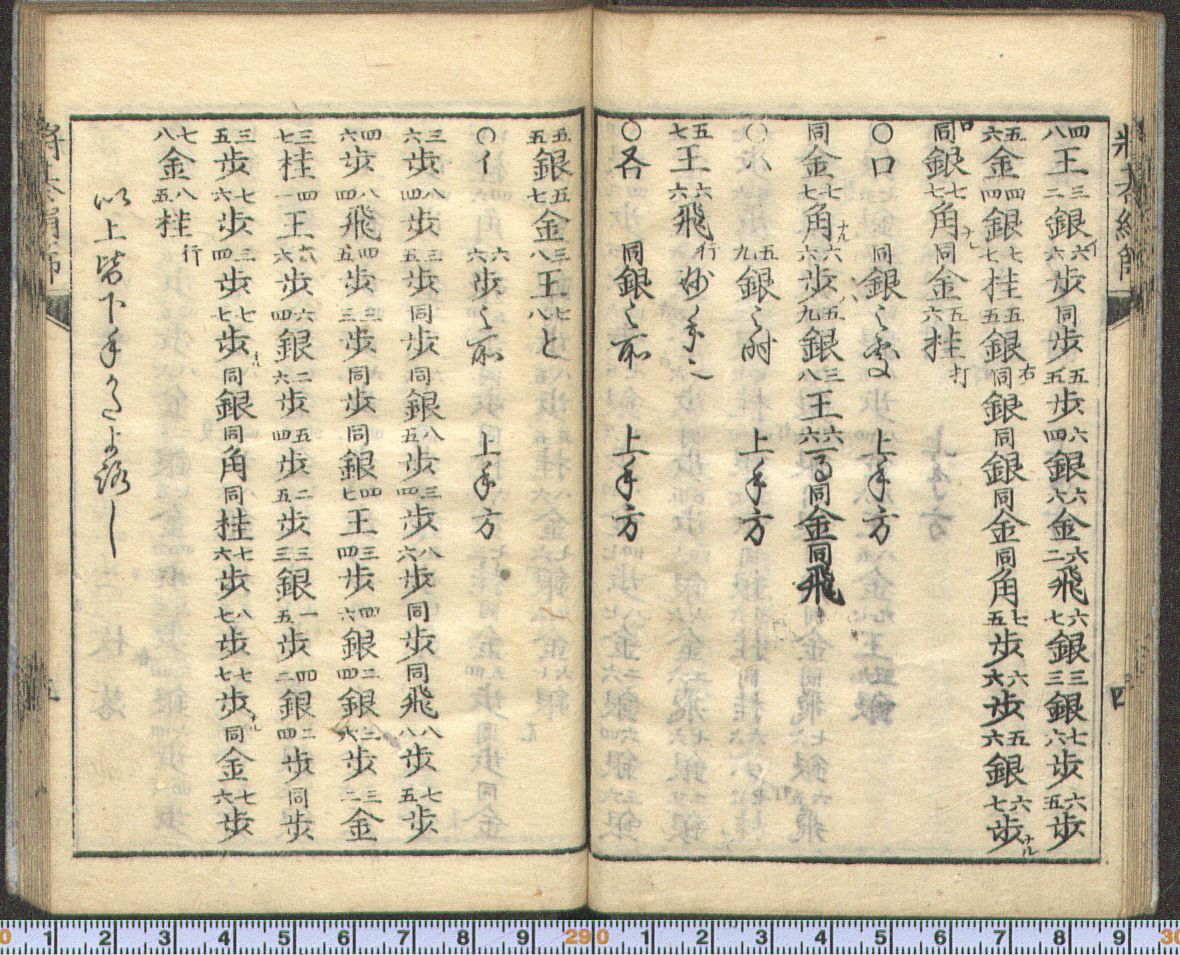 將棊絹篩 四
四八王三二銀六六歩イ同歩五五歩六四銀六六金六二飛六七銀三三銀七六歩六五歩
五六金四四銀七七桂五五銀右同銀同銀同金同角七五歩六六歩五六銀六七歩ナル
同銀ロ七七角ナル同金五六桂打
○ロ 同銀之処 上手方
同金七七角ナル六六歩五九銀ハ三八王六六馬同金同飛
○ハ 五九銀之時 上手方
五七王六六飛行妙手也
○又 同銀之前 上手方
五五銀五七金三八王七八と
○イ 六六歩之前 上手方
三六歩八四歩三五歩同歩同銀八五歩三四歩八六歩同歩同飛八八歩七五歩
四六歩八四飛四五歩三三歩同歩同銀四七王三四歩四六銀二四銀二六歩三二金
三七桂四一王六六歩六四銀二六歩五四歩二五歩三三銀一五歩四二銀二四歩同歩
三五歩七六歩四歩七七歩ナル同銀同角同桂七六歩八七歩七七歩ナル同金七六歩
七八金八五桂行
以上皆下手
將棊絹篩 五